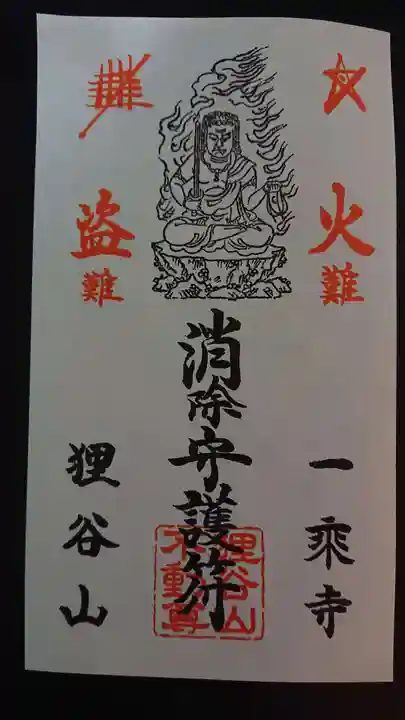 火難
消除守護符
盗難
一乘寺
狸谷山
狸谷山
不動尊